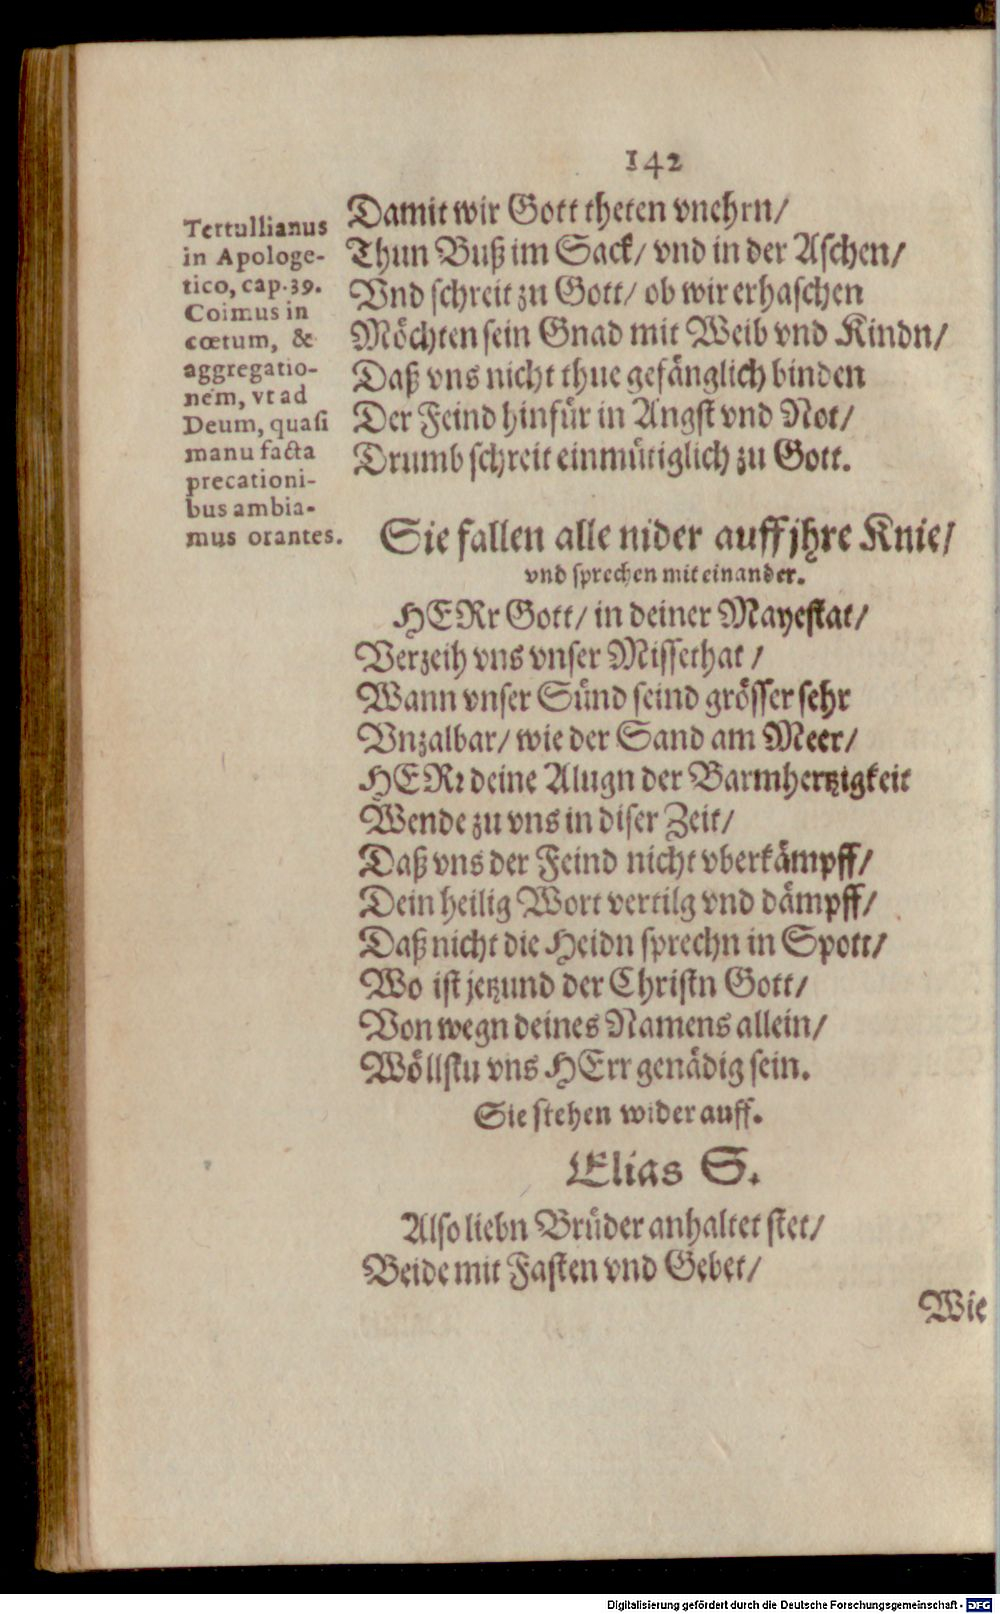 142
Tertullianus
in Apologe-
tico, cap. 39.
Coimus in
cœtum, &
aggregatio-
nem, vt ad
Deum, quasi
manu facta
precationi-
bus ambia-
mus orantes.
Damit wir Gott theten vnehrn/
Thun Buß im Sack/ vnd in der Aschen/
Vnd schreit zu Gott/ ob wir erhaschen
Möchten sein Gnad mit Weib vnd Kindn/
Daß vns nicht thue gefänglich binden
Der Feind hinfür in Angst vnd Not/
Drumb schreit einmütiglich zu Gott.
Sie fallen alle nider auff jhre Knie/
vnd sprechen mit einander.
HERr Gott/ in deiner Mayestat/
Verzeih vns vnser Missethat/
Wann vnser Sünd seind grösser sehr
Vnzalbar/ wie der Sand am Meer/
HERr deine Alugn der Barmhertzigkeit
Wende zu vns in diser Zeit/
Daß vns der Feind nicht vberkämpff/
Dein heilig Wort vertilg vnd dämpff/
Daß nicht die Heidn sprechn in Spott/
Wo ist jetzund der Christn Gott/
Von wegn deines Namens allein/
Wöllstu vns HErr genädig sein.
Sie stehen wider auff.
Elias S.
Also liebn Brüder anhaltet stet/
Beide mit Fasten vnd Gebet/
Wie
Digitalisierung gefördert durch die Deutsche Forschungsgemeinschaft - DFG